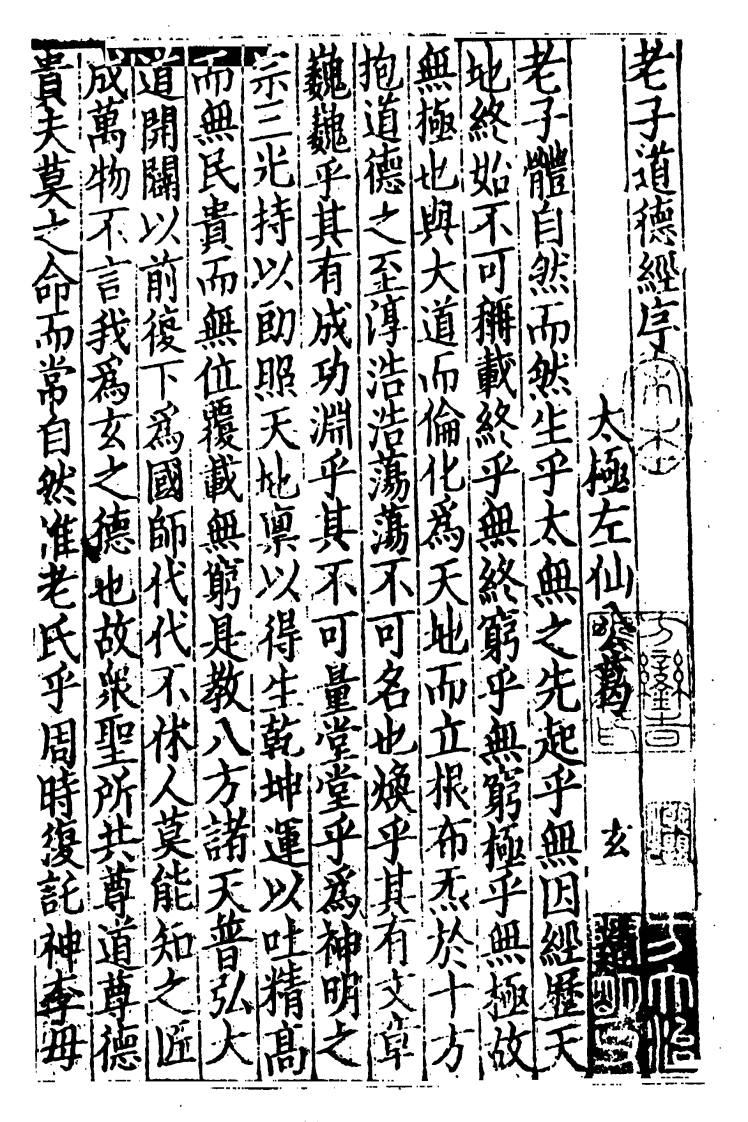 老子道德經序
太極左仙公葛 玄
老子體自然而然生乎太無之先起乎無因經歷天
地終始不可稱載終乎無終窮乎無窮極乎無極故
無極也與大道而倫化為天地而立根布炁於十方
抱道德之至淳浩浩蕩蕩不可名也煥乎其有文章
巍巍乎其有成功淵乎其不可量堂堂乎為神明之
宗三光持以朗照天地禀以得生乾坤運以吐精高
而無民貴而無位覆載無窮是教八方諸天普弘大
道開闢以前復下為國師代代不休人莫能知之匠
成萬物不言我為玄之德也故衆聖所共尊道尊德
貴夫莫之命而常自然惟老氏乎周時復託神李母